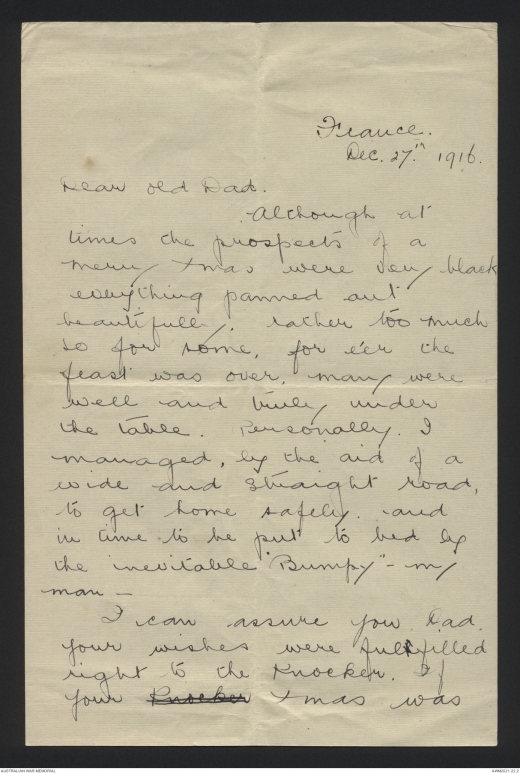 France.
Dec. 27.th 1916.
Dear old Dad.
Although at
times the prospects of a
merry Xmas were very black
everything panned out
beautifully, rather too much
so for some, for e'er the
feast was over, many were
well and truly under
the table. Personally. I
managed, by the aid of a
wide and straight road,
to get home safely. and
in time to be put to bed by
the inevitable "Bumpy" - my
man -
I can assure you Dad.
your wishes were fulfilled
right to the Knocker. If
your Knocker Xmas was
AUSTRALIAN WAR MEMORIAL